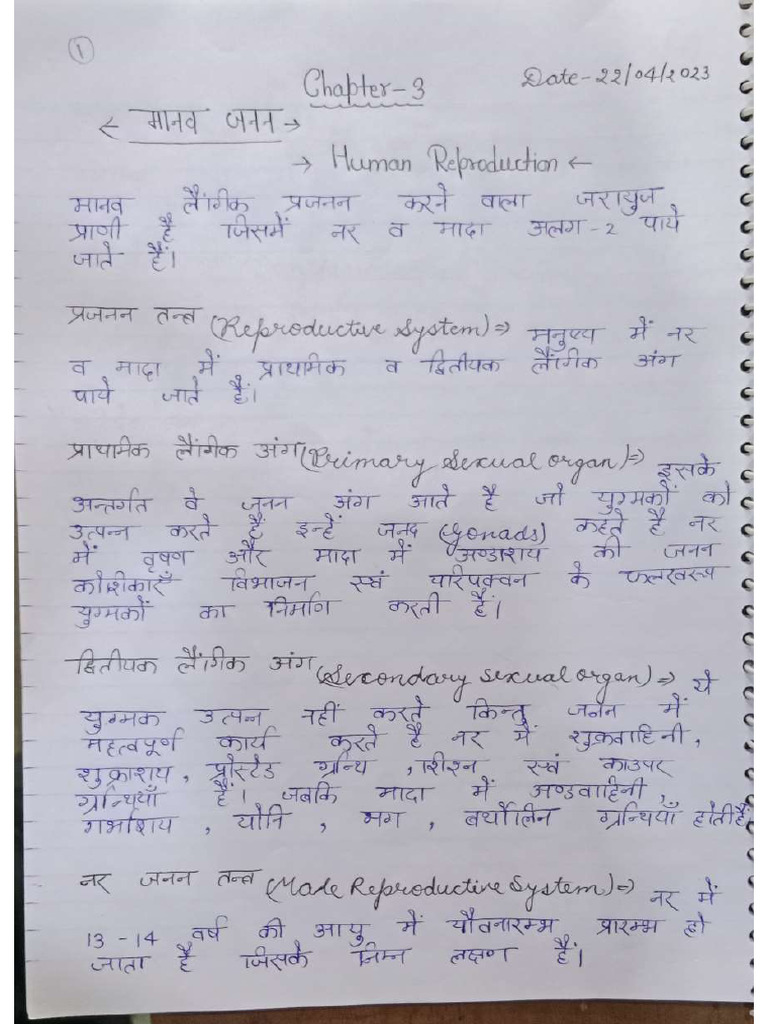 1
Chapter-3
Date-22/04/2023
← मानव जनन →
→ Human Reproduction ←
मानव लैंगिक प्रजनन करने वाला जरायुज
प्राणी है जिसमें नर व मादा अलग-2 पाये
जाते हैं।
प्रजनन तन्त्र (Reproductive System) ⇒ मनुष्य में नर
व मादा में प्राथमिक व द्वितीयक लैंगिक अंग
पाये जाते हैं।
प्राथमिक लैंगिक अंग (Primary Sexual organ) ⇒ इसके
अन्तर्गत वे जनन अंग आते है जो युग्मकों को
उत्पन्न करते हैं इन्हें जनद (Gonads) कहते है नर
में वृषण और मादा में अण्डाशय की जनन
कोशिकाएँ विभाजन एवं परिपक्वन के फलस्वरूप
युग्मकों का निर्माण करती हैं।
द्वितीयक लैंगिक अंग (Secondary sexual organ) ⇒ ये
युग्मक उत्पन नहीं करते किन्तु जनन में
महत्वपूर्ण कार्य करते है नर में शुक्रवाहिनी,
शुक्राशय, प्रोस्टेड ग्रन्थि, शिश्न एवं काउपर
ग्रन्थियाँ हैं। जबकि मादा में अण्डवाहिनी,
गर्भाशय, योनि, भग, बर्थोलिन ग्रन्थियाँ होती हैं
नर जनन तन्त्र (Male Reproductive System) ⇒ नर में
13-14 वर्ष की आयु में यौवनारम्भ प्रारम्भ हो
जाता है जिसके निम्न लक्षण हैं।